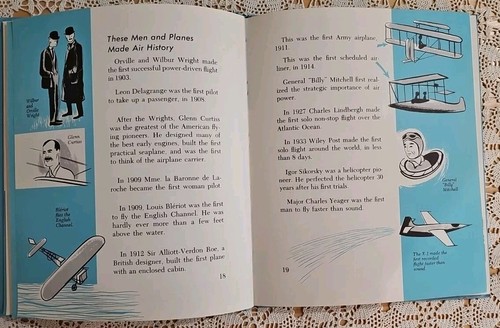 These Men and Planes
Made Air History
Orville and Wilbur Wright made
the first successful power-driven flight
in 1903.
Leon Delagrange was the first pilot
to take up a passenger, in 1908.
After the Wrights, Glenn Curtiss
was the greatest of the American fly
ing pioneers. He designed many of
the best early engines, built the first
practical seaplane, and was the first
to think of the airplane carrier.
In 1909 Mme. la Baronne de La-
roche became the first woman pilot.
In 1909, Louis Blériot was the first
to fly the English Channel. He was
hardly ever more than a few feet
above the water.
In 1912 Sir Alliott-Verdon Roe, a
British designer, built the first plane
with an enclosed cabin.
18
Wilbur
and
Orville
Wright
Glenn
Curtiss
Blériot
Was the
English
Channel.
This was the first Army airplane,
1911.
This was the first scheduled air
liner, in 1914.
General "Billy" Mitchell first real
ized the strategic importance of air
power.
In 1927 Charles Lindbergh made
the first solo non-stop flight over the
Atlantic Ocean.
In 1933 Wiley Post made the first
solo flight around the world, in less
than 8 days.
Igor Sikorsky was a helicopter pio-
neer. He perfected the helicopter 30
years after his first trials.
Major Charles Yeager was the first
man to fly faster than sound.
19
General
"Billy"
Mitchell
The X-1 made the
first recorded
flight faster than
sound